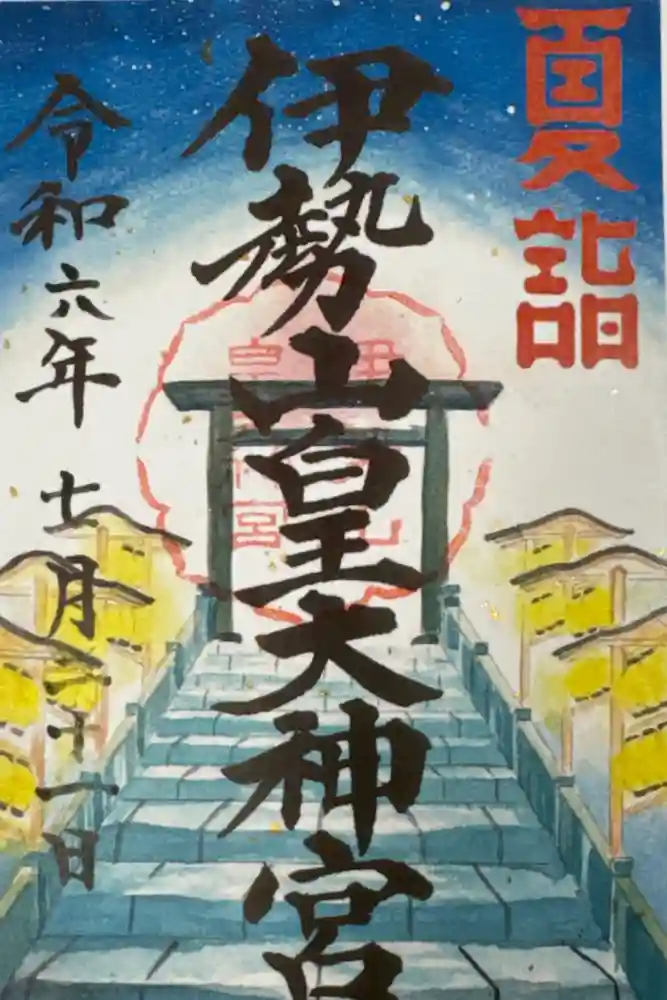 夏詣
伊勢山皇大神宮
令和六年七月二十一日